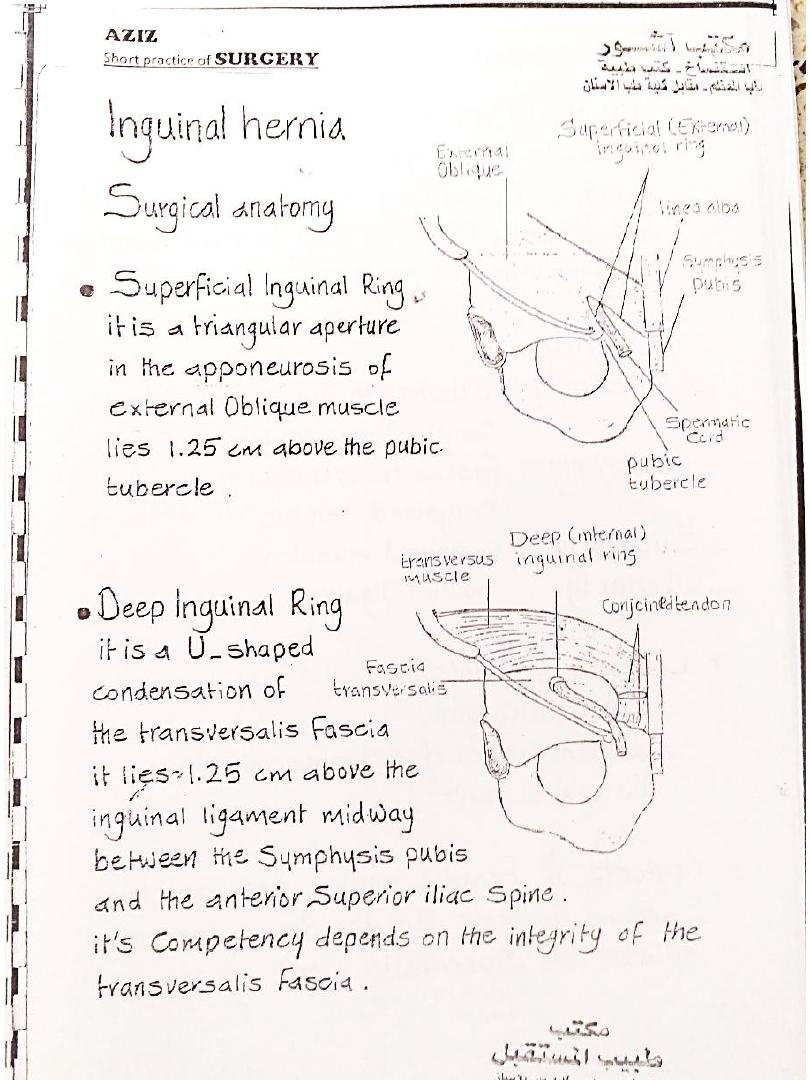 AZIZ
Short practice of SURGERY
مكتب آشور
استنساخ - كتب طبية
باب المعظم - مقابل كلية طب الاسنان
Inguinal hernia
Surgical anatomy
External
Oblique
Superficial (External)
inguinal ring
linea alba
Symphysis
pubis
Spermatic
Cord
pubic
tubercle
• Superficial Inguinal Ring
it is a triangular aperture
in the apponeurosis of
external Oblique muscle
lies 1.25 cm above the pubic
tubercle.
transversus
muscle
Deep (internal)
inguinal ring
Conjoined tendon
Fascia
transversalis
• Deep Inguinal Ring
it is a U-shaped
condensation of
the transversalis Fascia
it lies ~1.25 cm above the
inguinal ligament midway
between the Symphysis pubis
and the anterior Superior iliac Spine.
it's Competency depends on the integrity of the
transversalis Fascia.
مكتب
طبيب المستقبل